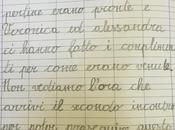 pertine erano pronte e
Veronica ed alessandra
ci hanno fatto i conplimen
ti per come erano venute.
Non vediamo l'ora che
arrivi il secondo incontro
per poter proseguire questo